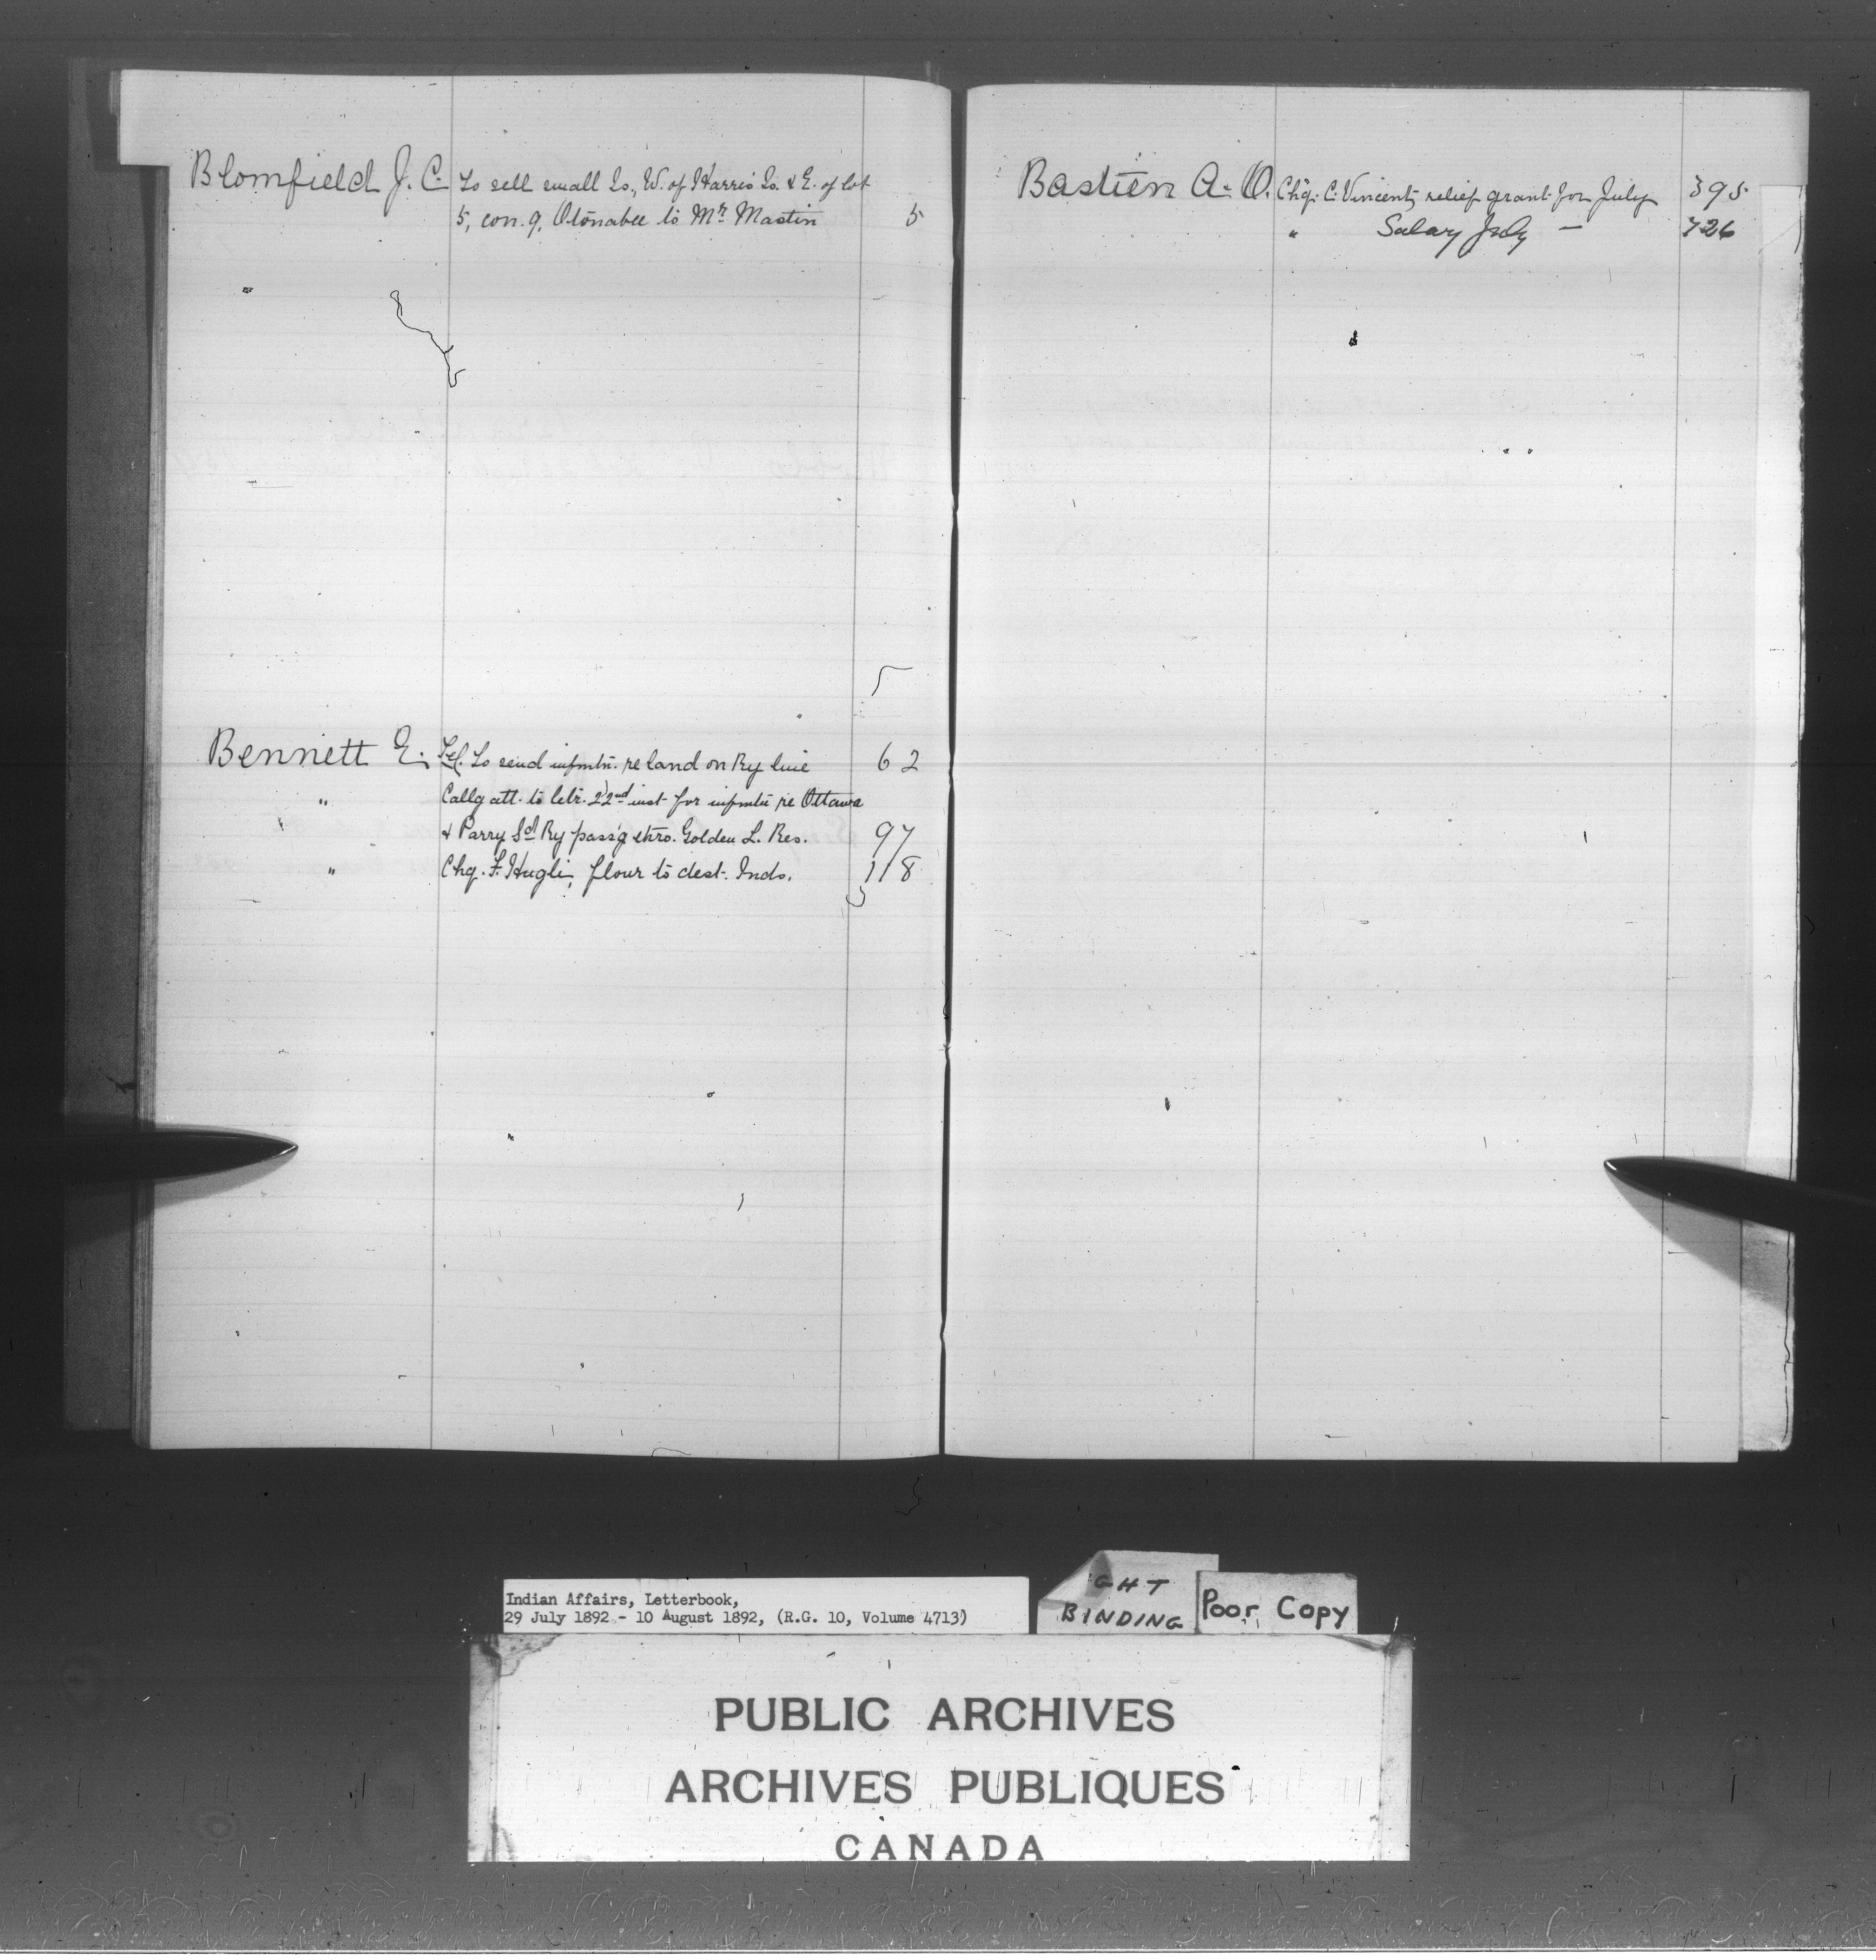 Blomfield J. C. To sell small Is., W. of Harris Is. & E. of lot
5, con. 9, Otonabee to Mr. Mastin 5
"
Bennett E. Tel. To send infmtn. re land on Ry line 62
" Callg att. to letr. 22nd inst for infmtn re Ottawa
& Parry Sd Ry pass'g thro. Golden L. Res. 97
" Chq. F. Hugli, flour to dest. Inds. 118
Bastien A. O. Chq. C. Vincent, relief grant for July 395
" Salary July — 726
Indian Affairs, Letterbook,
29 July 1892 - 10 August 1892, (R.G. 10, Volume 4713)
GHT
BINDING
Poor Copy
PUBLIC ARCHIVES
ARCHIVES PUBLIQUES
CANADA